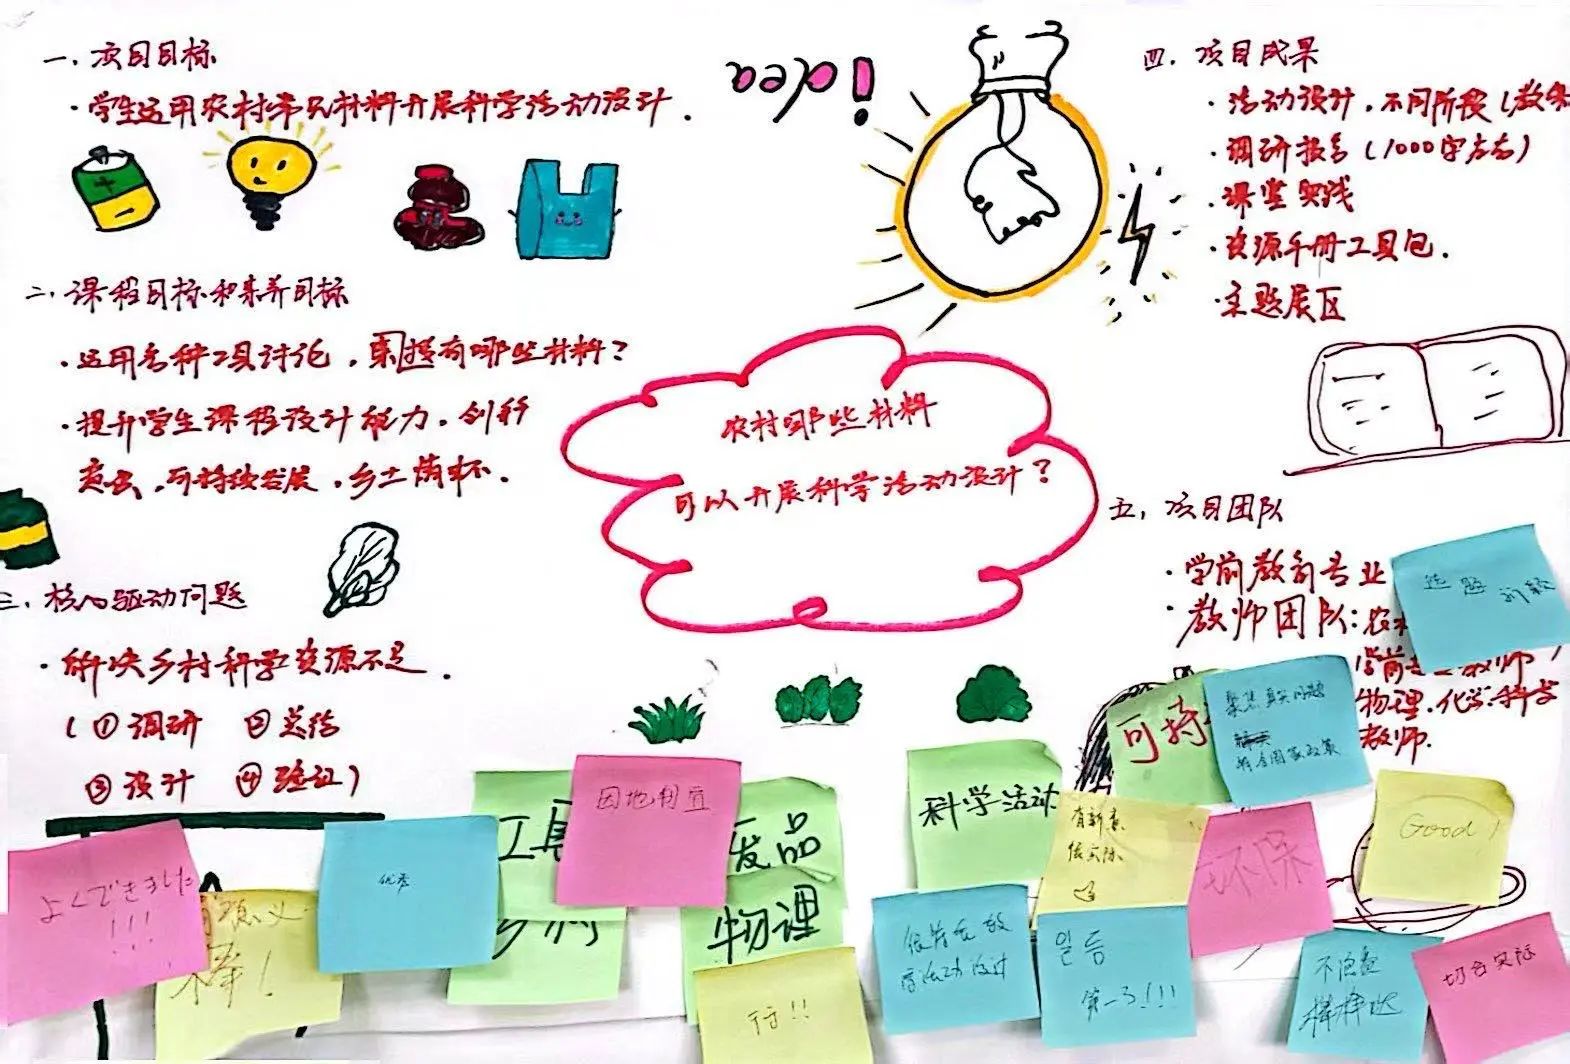 一、项目目标
·学生运用农村常见材料开展科学活动设计.
idea!
二、课程目标和素养目标
·运用各种工具讨论，有哪些材料？
·提升学生课程设计能力，创新
意识，可持续发展，乡土情怀.
三、核心驱动问题
·解决乡村科学资源不足.
(①调研 ②总结
③设计 ④验证)
农村哪些材料
可以开展科学活动设计？
四、项目成果
·活动设计，不同阶段(教案
·调研报告(1000字左右)
·课堂实践
·资源手册工具包.
·主题展区
五、项目团队
·学前教育专业
·教师团队：农村
教师
物理，化学，科学
教师.
选题新颖
可持
聚焦真实问题
符合国家政策
よくできました
!!!
有意义
棒！
优秀
工具
因地制宜
废品
物理
行!!
科学活动
有新意
很实际
环保
Good!
很贴合教
育活动设计
일등
第一了!!!
不愧是
棒棒哒
切合实际